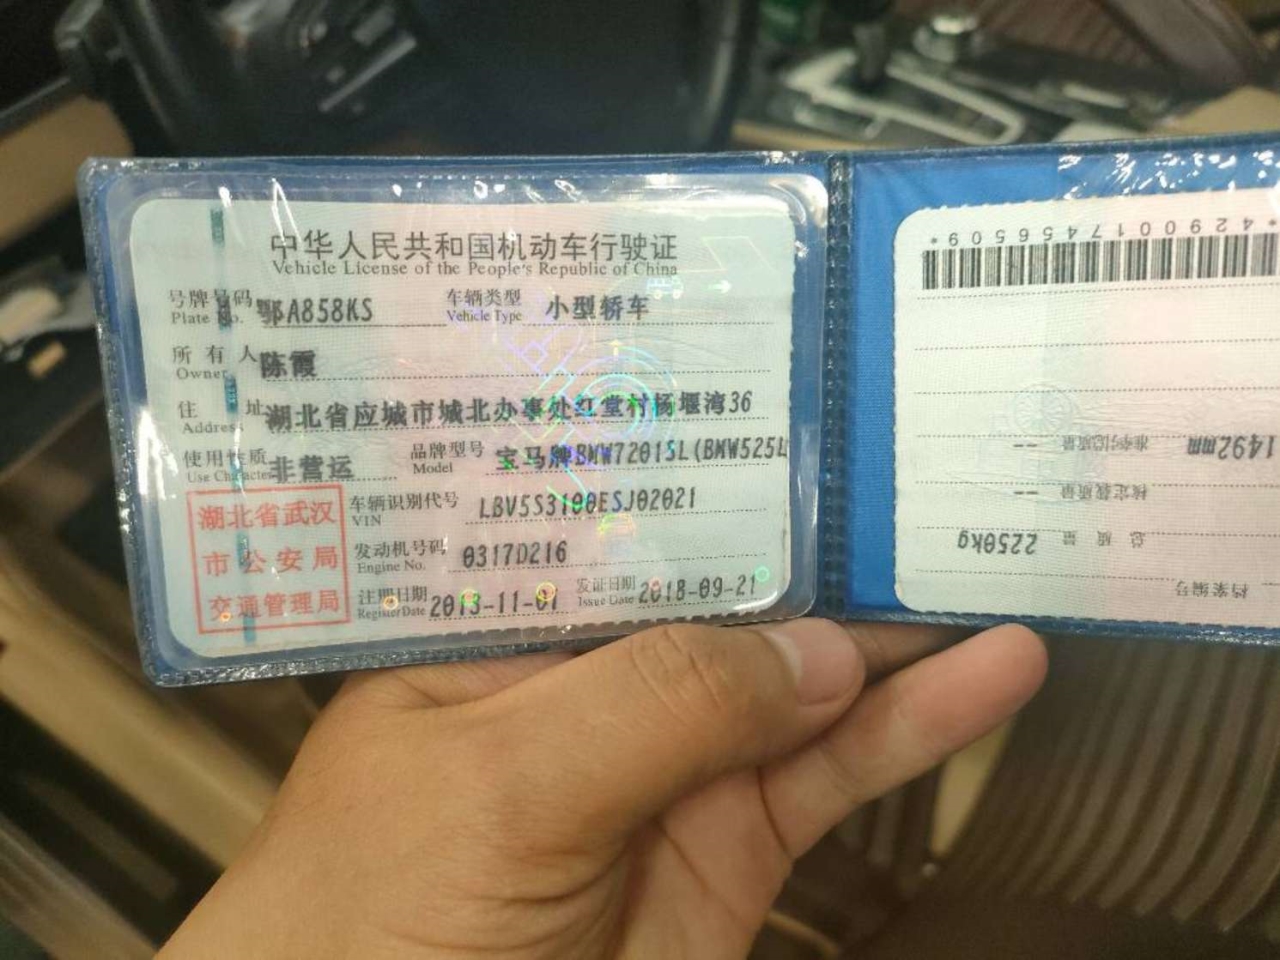 中华人民共和国机动车行驶证
Vehicle License of the People's Republic of China
号牌号码 Plate No. 鄂A858KS 车辆类型 Vehicle Type 小型轿车
所有人 Owner 陈霞
住址 Address 湖北省应城市城北办事处红堂村杨堰湾36
使用性质 Use Character 非营运 品牌型号 Model 宝马牌BMW7201SL(BMW525L
湖北省武汉
市公安局
交通管理局
车辆识别代号 VIN LBV5S3100ESJ02021
发动机号码 Engine No. 0317D216
注册日期 Register Date 2013-11-01 发证日期 Issue Date 2018-09-21
*4290017456509*
1492mm 准牵引总质量 --
核定载质量 --
总质量 2250kg
档案编号